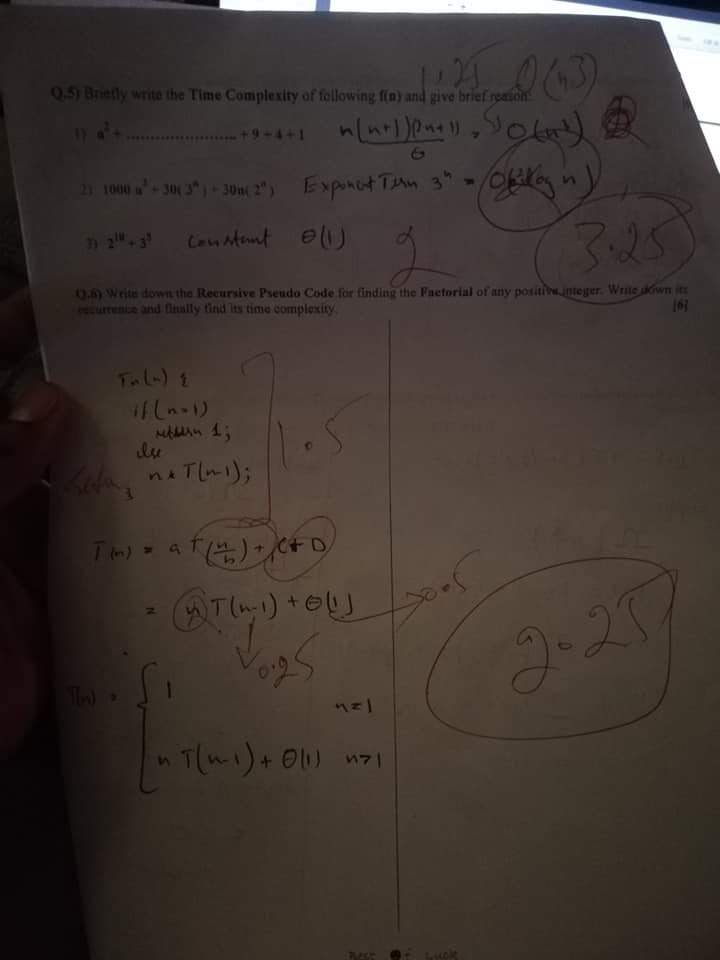 1.25 O(n3)
Q.5) Briefly write the Time Complexity of following f(n) and give brief reason.
1) n² + ........................ + 9 + 4 + 1 n(n+1)(2n+1) = O(n³)
6
2) 1000 n² + 30( 3ⁿ ) + 30n( 2ⁿ ) Exponent Term 3ⁿ =
3) 2¹⁰ + 3⁵ Constant θ(1) 2 3.25
Q.6) Write down the Recursive Pseudo Code for finding the Factorial of any positive integer. Write down its
recurrence and finally find its time complexity. [6]
(n) {
if (n=1)
return 1;
else
n * T(n-1);
}
1.5
T(n) = a T(n/b) + C + D
= n T(n-1) + θ(1) 0.5
0.25
2.25
T(n) = { 1 n=1
n T(n-1) + θ(1) n>1
Best of Luck